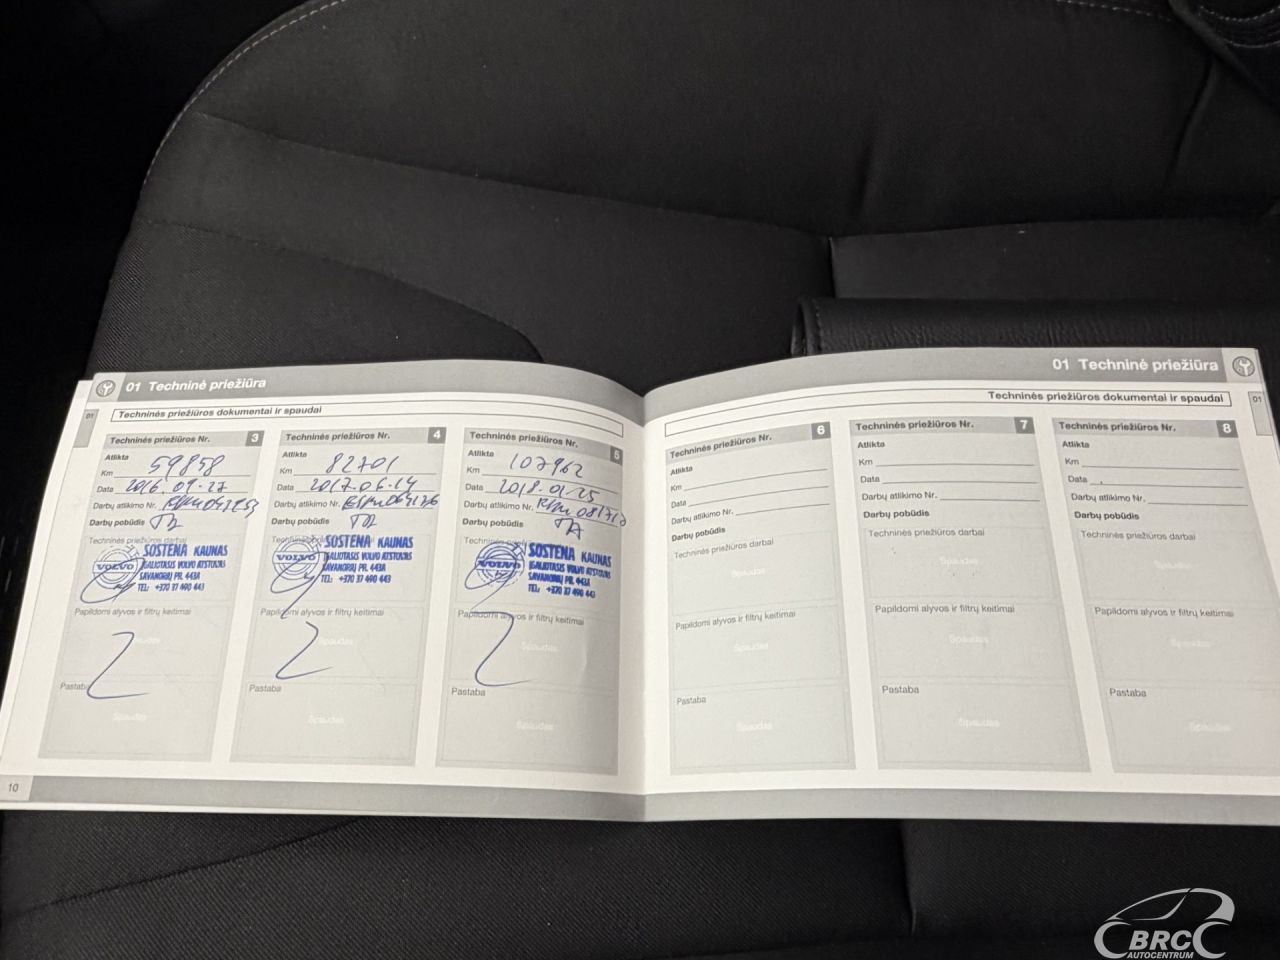 01 Techninė priežiūra
01
Techninės priežiūros dokumentai ir spaudai
Techninės priežiūros Nr. 3
Atlikta
Km 59858
Data 2016.09.27
Darbų atlikimo Nr.
Darbų pobūdis
Techninės priežiūros darbai
VOLVO
SOSTENA KAUNAS
ĮGALIOTASIS VOLVO ATSTOVAS
SAVANORIŲ PR. 443A
TEL: +370 37 490 443
Papildomi alyvos ir filtrų keitimai
Spaudas
Pastaba
Spaudas
Techninės priežiūros Nr. 4
Atlikta
Km 82701
Data 2017.06.14
Darbų atlikimo Nr.
Darbų pobūdis
VOLVO
SOSTENA KAUNAS
ĮGALIOTASIS VOLVO ATSTOVAS
SAVANORIŲ PR. 443A
TEL: +370 37 490 443
Papildomi alyvos ir filtrų keitimai
Spaudas
Pastaba
Spaudas
Techninės priežiūros Nr. 5
Atlikta
Km 107962
Data 2018.01.25
Darbų atlikimo Nr.
Darbų pobūdis TA
VOLVO
SOSTENA KAUNAS
ĮGALIOTASIS VOLVO ATSTOVAS
SAVANORIŲ PR. 443A
TEL: +370 37 490 443
Papildomi alyvos ir filtrų keitimai
Spaudas
Pastaba
Spaudas
10
01 Techninė priežiūra
Techninės priežiūros dokumentai ir spaudai
01
Techninės priežiūros Nr. 6
Atlikta
Km
Data
Darbų atlikimo Nr.
Darbų pobūdis
Techninės priežiūros darbai
Spaudas
Papildomi alyvos ir filtrų keitimai
Spaudas
Pastaba
Spaudas
Techninės priežiūros Nr. 7
Atlikta
Km
Data
Darbų atlikimo Nr.
Darbų pobūdis
Techninės priežiūros darbai
Spaudas
Papildomi alyvos ir filtrų keitimai
Spaudas
Pastaba
Spaudas
Techninės priežiūros Nr. 8
Atlikta
Km
Data
Darbų atlikimo Nr.
Darbų pobūdis
Techninės priežiūros darbai
Spaudas
Papildomi alyvos ir filtrų keitimai
Spaudas
Pastaba
Spaudas
BRC
AUTOCENTRUM